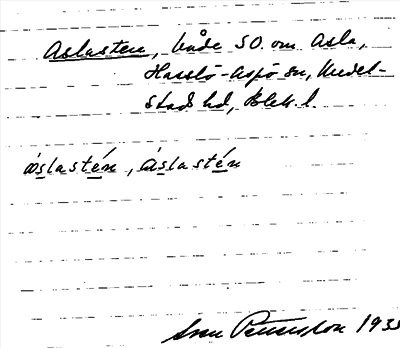 Aslasten, både SO. om Asla,
Hasslö-Aspö sn, Medel-
stads hd, Blek. l.
áslastén, áslastén
Sven Petersson 1935